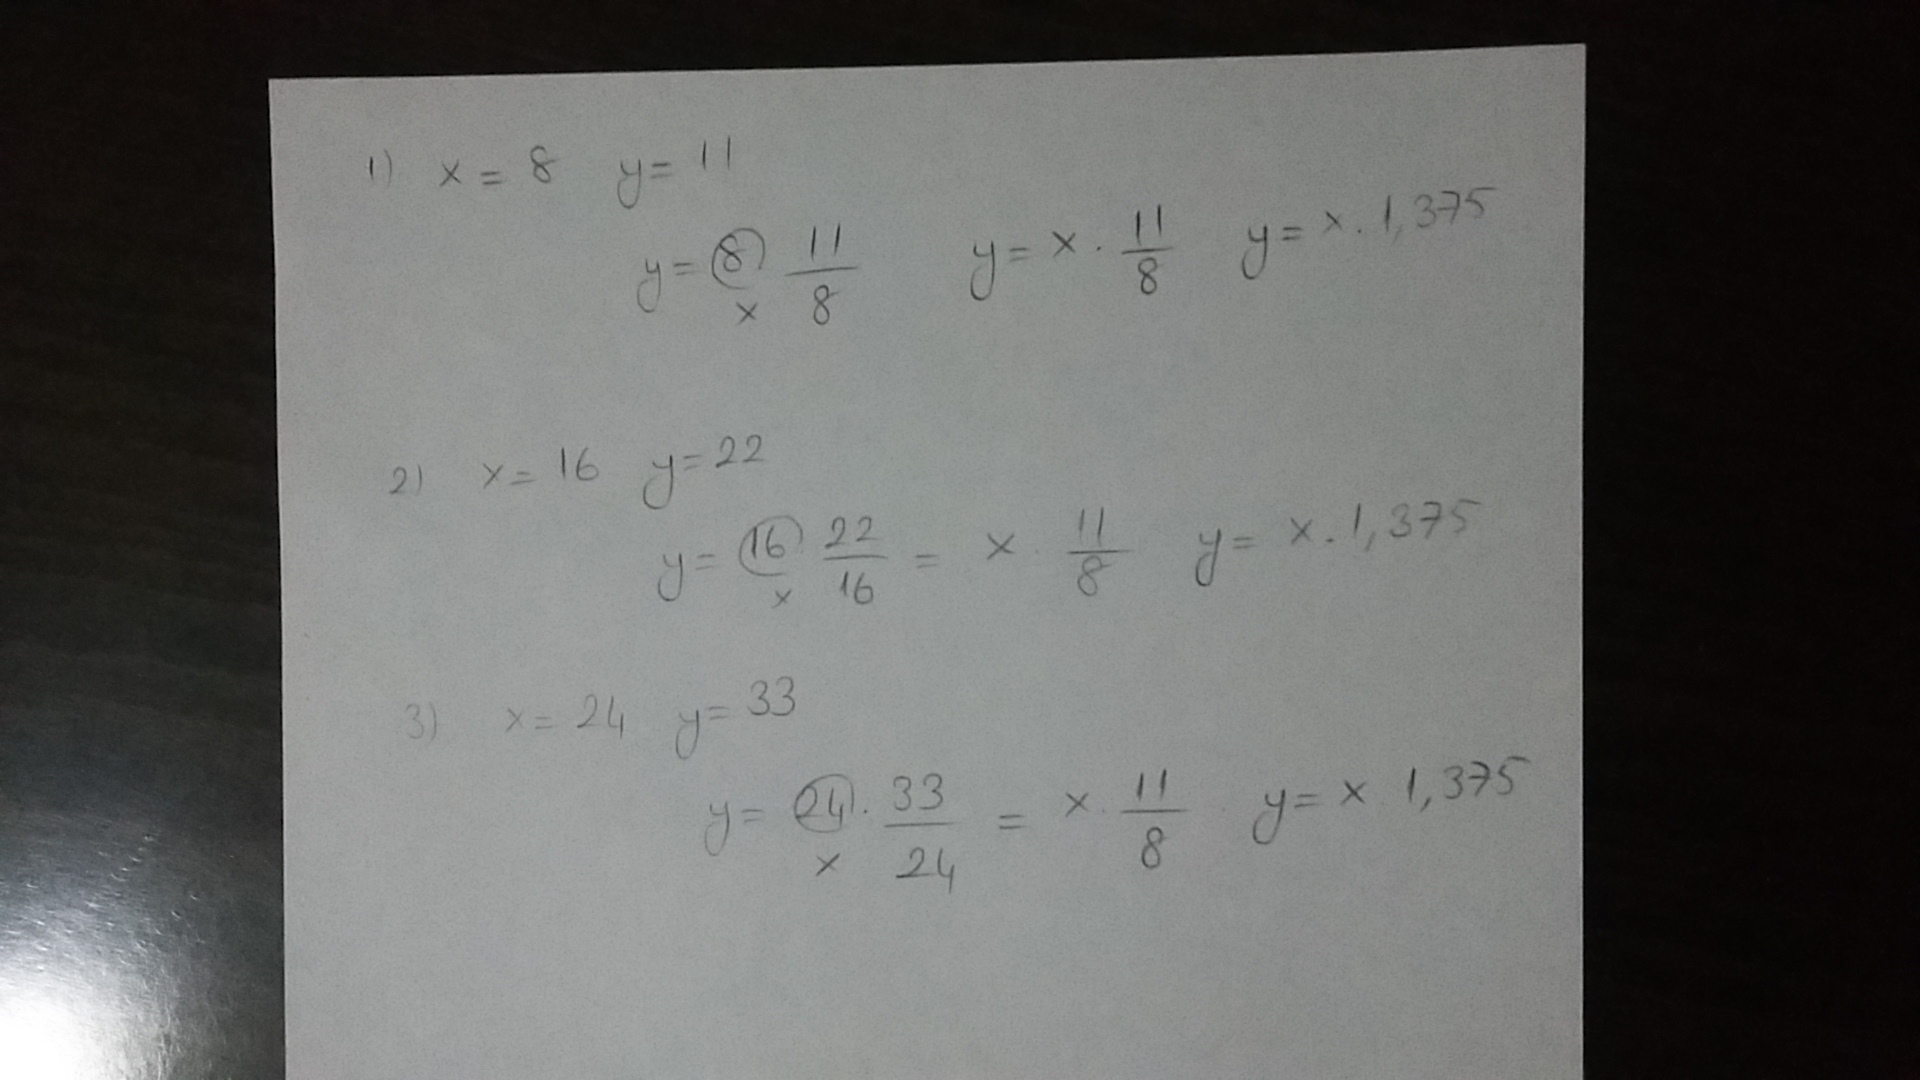 1) x = 8 y = 11
y = 8 11/8 y = x · 11/8 y = x . 1,375
x
2) x = 16 y = 22
y = 16 22/16 = x · 11/8 y = x . 1,375
x
3) x = 24 y = 33
y = 24 . 33/24 = x · 11/8 y = x 1,375
x